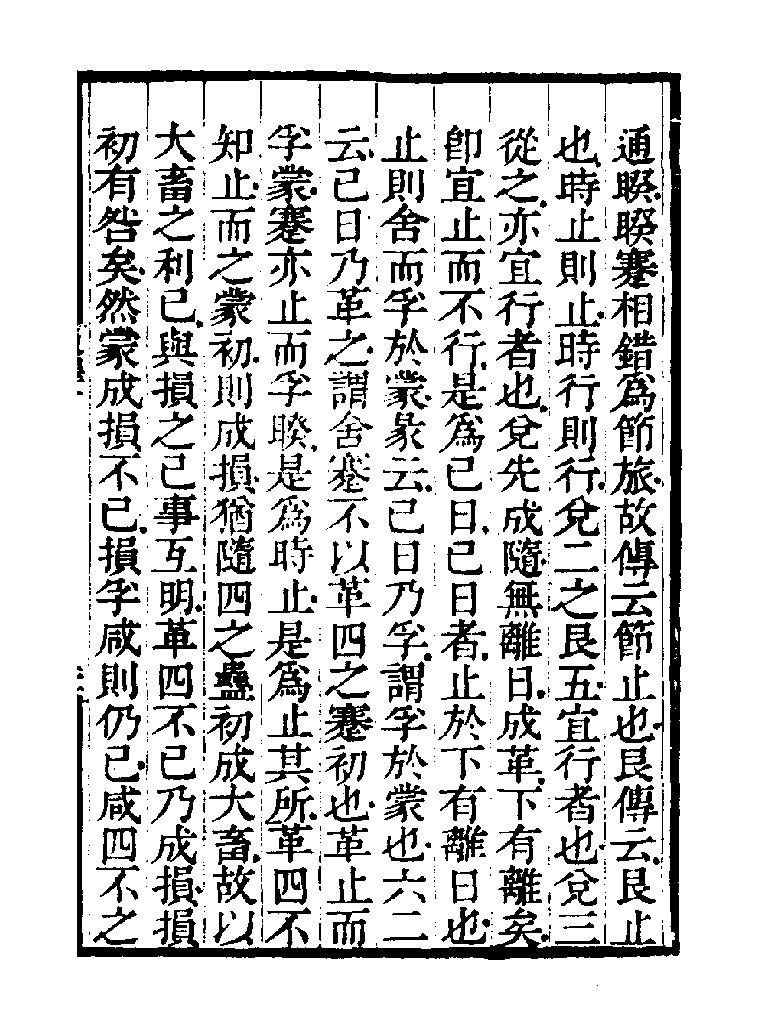 通睽睽蹇相錯爲節旅故傳云節止也艮傳云艮止
也時止則止時行則行兌二之艮五宜行者也兌三
從之亦宜行者也兌先成隨無離日成革下有離矣
卽宜止而不行是爲已日已日者止於下有離日也
止則舍而孚於蒙彖云已日乃孚謂孚於蒙也六二
云已日乃革之謂舍蹇不以革四之蹇初也革止而
孚蒙蹇亦止而孚睽是爲時止是爲止其所革四不
知止而之蒙初則成損猶隨四之蠱初成大畜故以
大畜之利已與損之已事互明革四不已乃成損損
初有咎矣然蒙成損不已損孚咸則仍已咸四不之